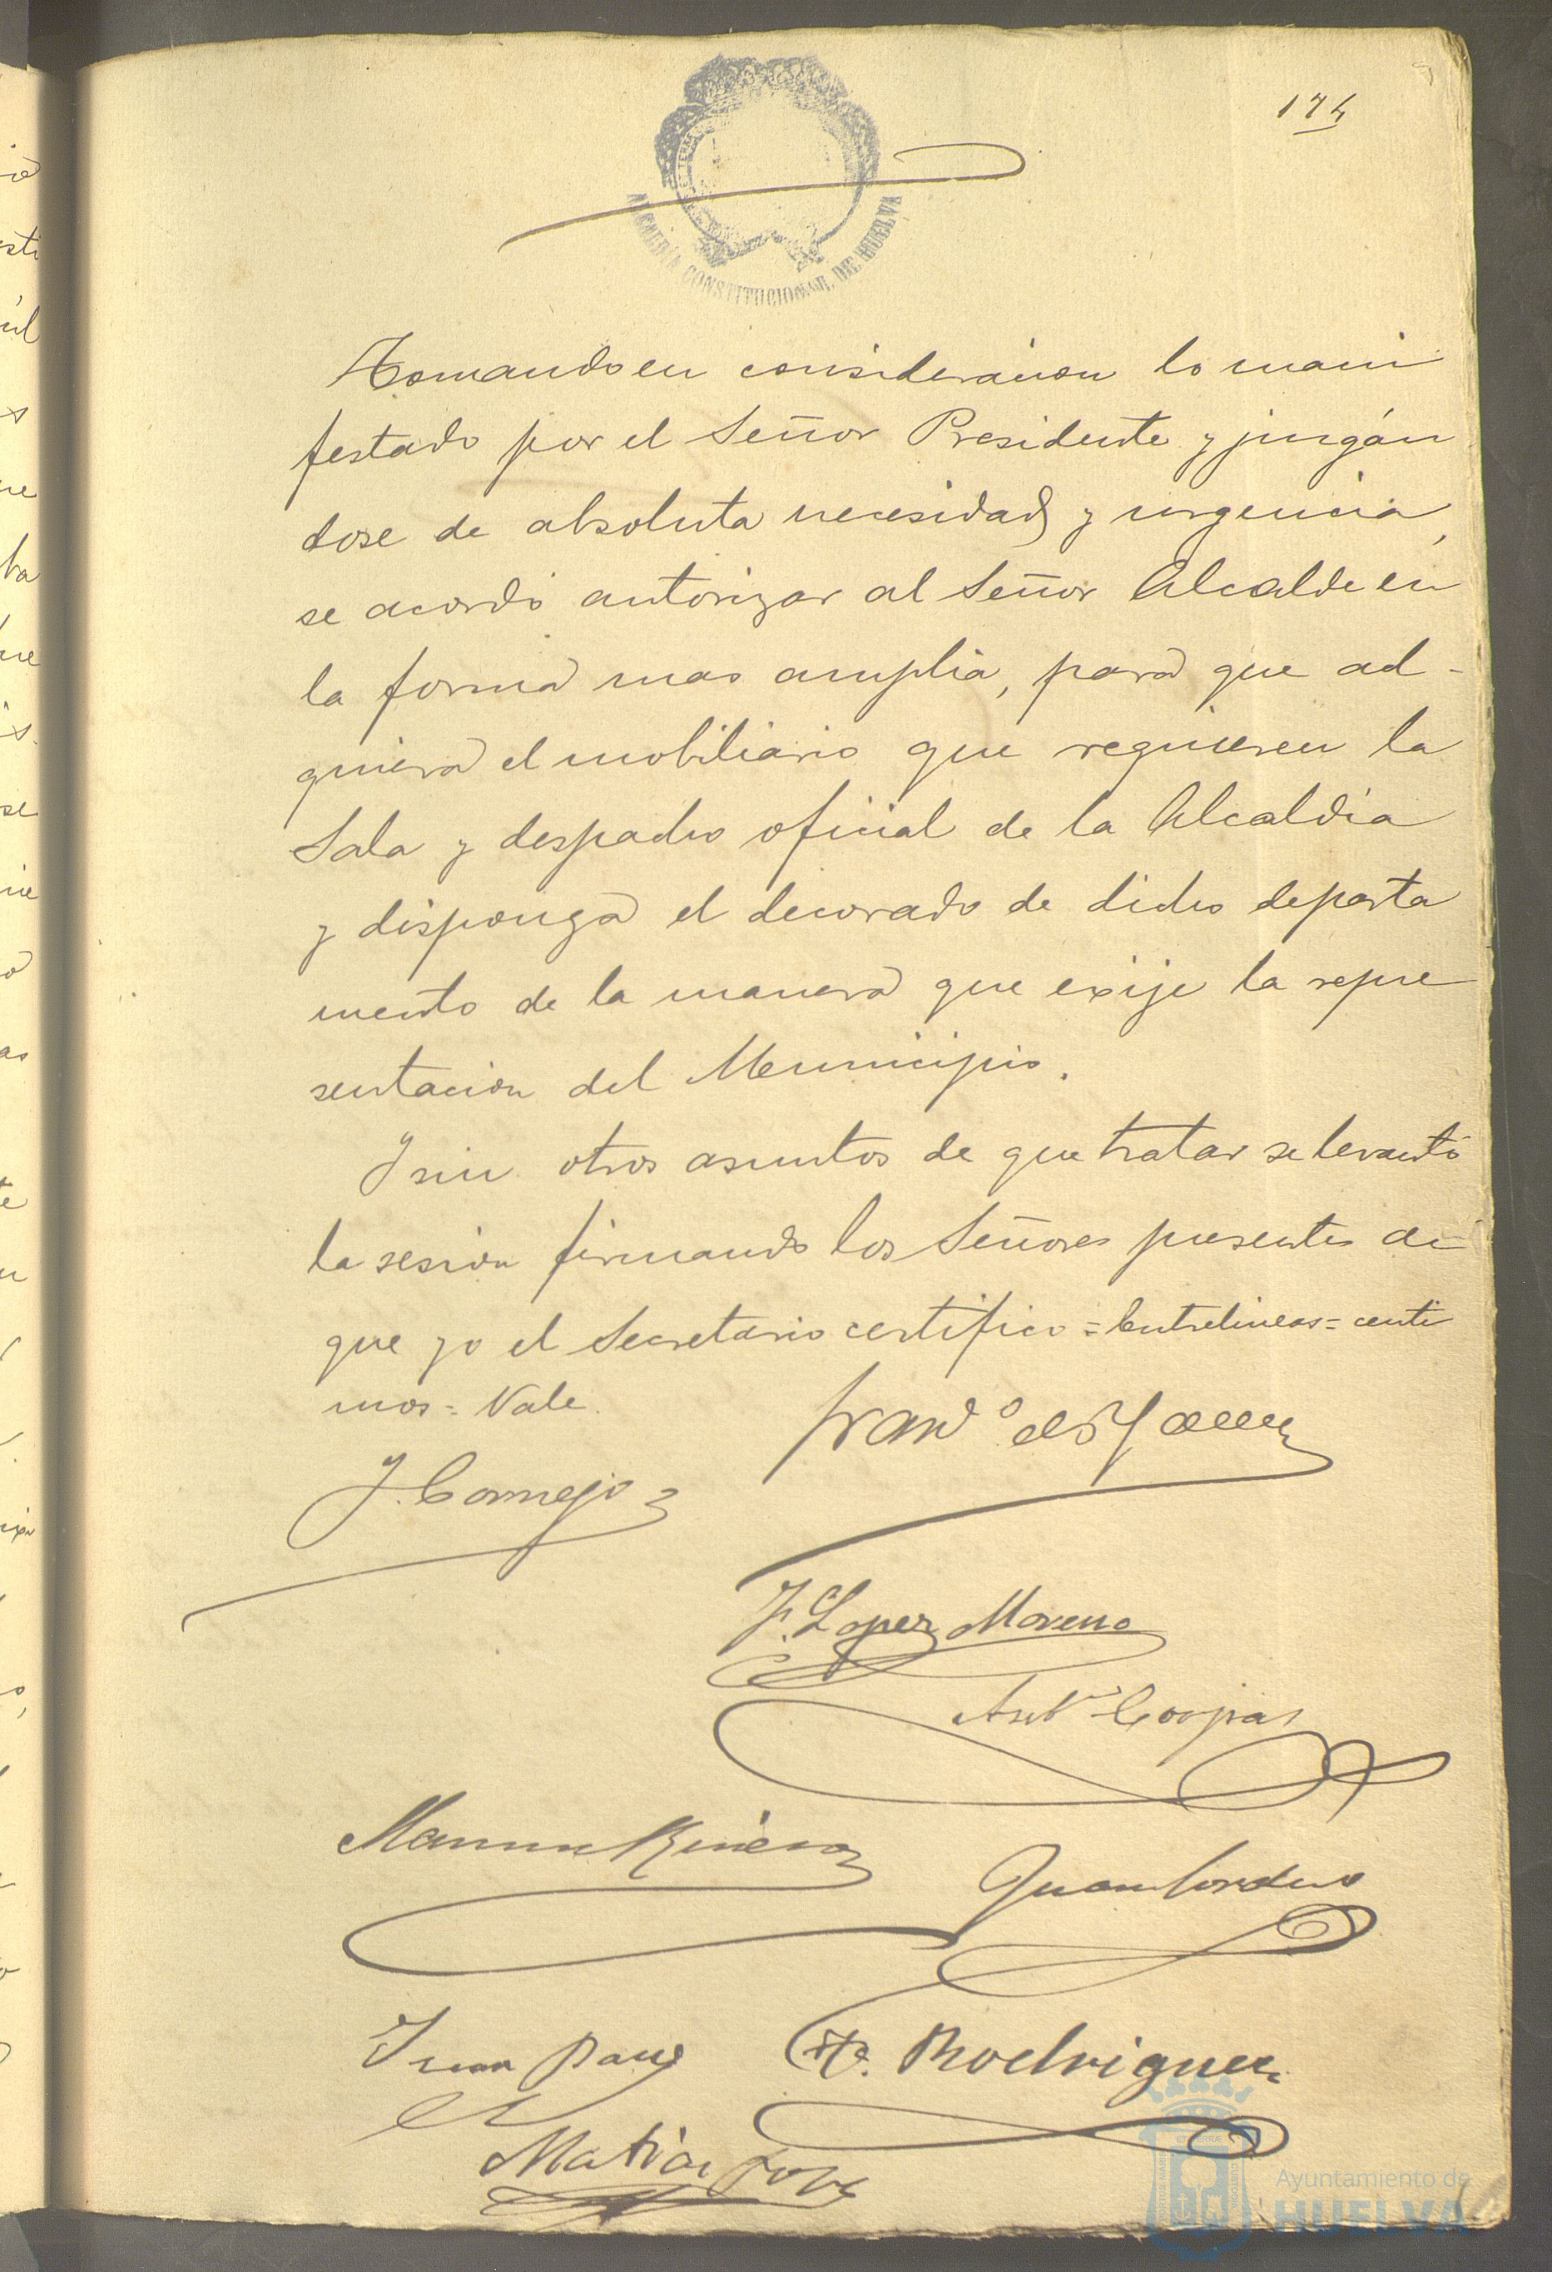 174
ALCALDIA CONSTITUCIONAL DE HUELVA
Tomando en consideracion lo mani
festado por el Señor Presidente y juzgán
dose de absoluta necesidad y urgencia,
se acordó autorizar al Señor Alcalde en
la forma mas amplia, para que ad-
quiera el mobiliario que requieren la
Sala y despacho oficial de la Alcaldia
y disponga el decorado de dicho departa
mento de la manera que exije la repre
sentacion del Municipio.
Y sin otros asuntos de que tratar se levantó
la sesion firmando los Señores presentes de
que yo el Secretario certifico = Entrelineas = centi
mos = Vale.
J. Cornejo
F. Lopez Moreno
Manuel
Juan Cordero
Juan
Rodriguez
Matias
Ayuntamiento de
HUELVA